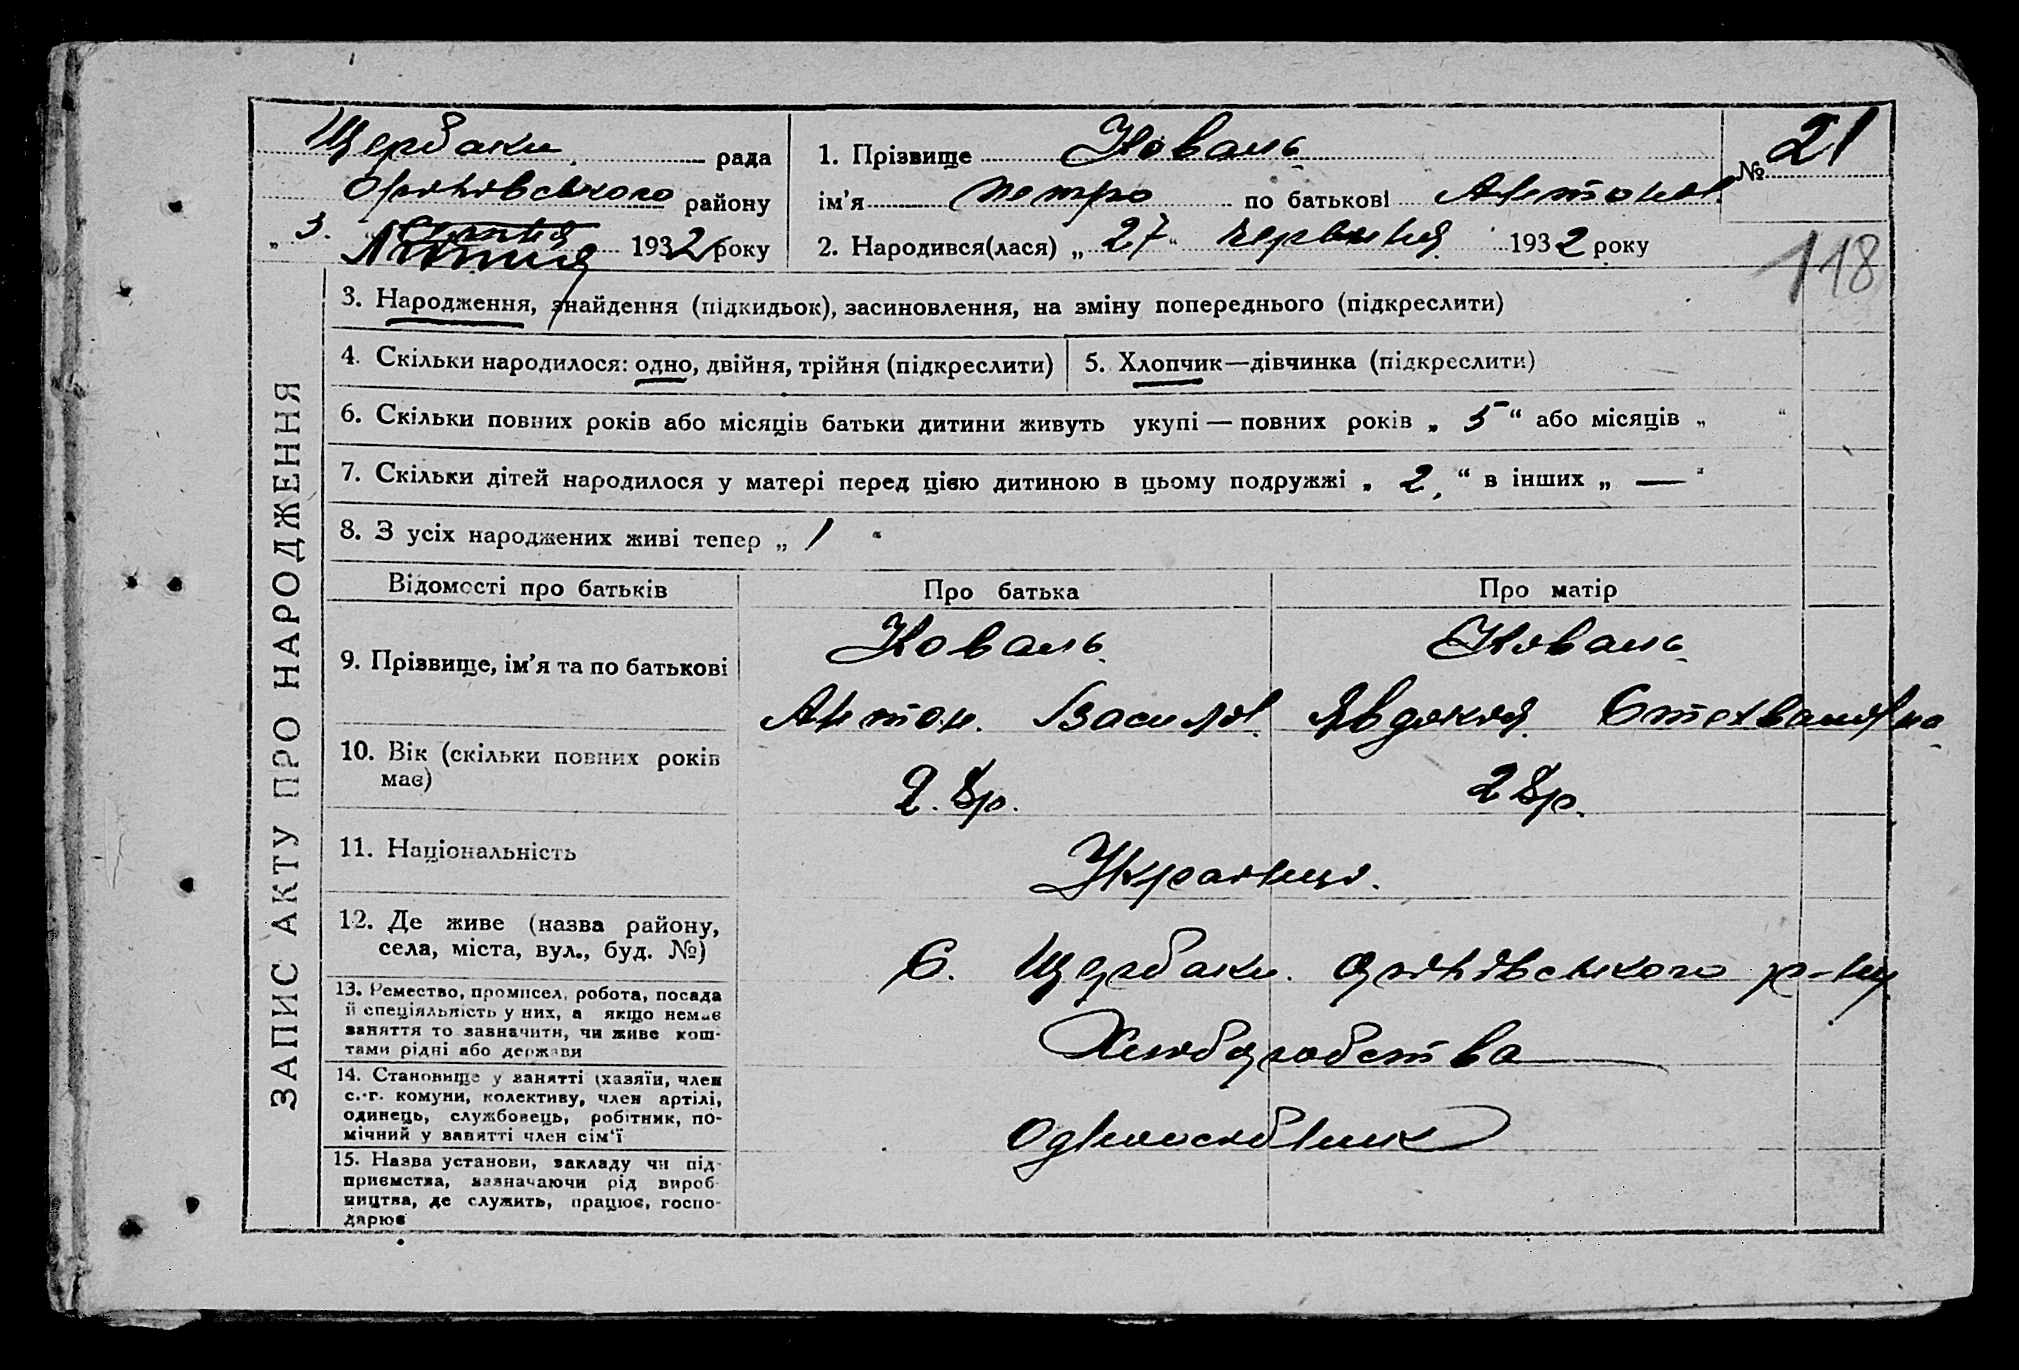 Щербаки рада
Оріхівського району
„ 3. “ Липня 1932 року
1. Прізвище Коваль
ім’я Петро по батькові Антонов.
2. Народився(лася) „ 27 “ червиня 1932 року
№ 21
118
ЗАПИС АКТУ ПРО НАРОДЖЕННЯ
3. Народження, знайдення (підкидьок), засиновлення, на зміну попереднього (підкреслити)
4. Скільки народилося: одно, двійня, трійня (підкреслити)
5. Хлопчик—дівчинка (підкреслити)
6. Скільки повних років або місяців батьки дитини живуть укупі — повних років „ 5 “ або місяців „ “
7. Скільки дітей народилося у матері перед цією дитиною в цьому подружжі „ 2, “ в інших „ — “
8. З усіх народжених живі тепер „ 1 “
Відомості про батьків Про батька Про матір
9. Прізвище, ім’я та по батькові
Коваль Коваль
Антон. Васил. Явдокія Стехванівна
10. Вік (скільки повних років
має)
2.8р. 28р.
11. Національність
Українці.
12. Де живе (назва району,
села, міста, вул., буд. №)
С. Щербаки. Оріхівського р-ну
13. Ремество, промисел, робота, посада
й спеціяльність у них, а якщо немає
заняття то зазначити, чи живе кош-
тами рідні або держави
Хлюборобства
14. Становище у занятті (хазяїн, член
с.-г. комуни, колективу, член артілі,
одинець, службовець, робітник, по-
мічний у занятті член сім’ї
одноосібник
15. Назва установи, закладу чи під-
приємства, зазначаючи рід вироб-
ництва, де служить, працює, госпо-
дарює